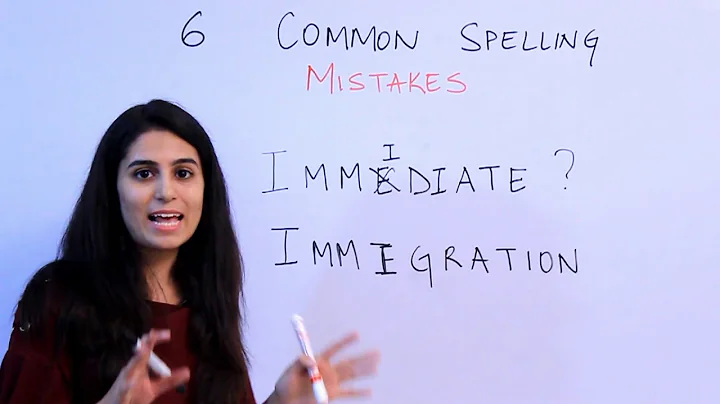 6 COMMON SPELLING
MISTAKES
I
IMMEDIATE ?
IMMIGRATION